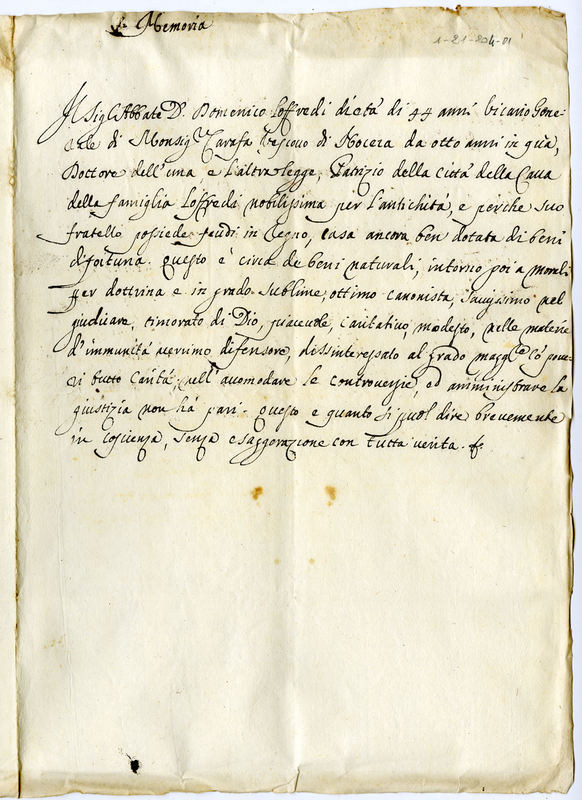 Memoria
1-21-204-01
Il Sig.r Abbate D. Domenico Loffredi di età di 44 anni Vicario Gene-
rale di Monsig.r Carafa Vescovo di Nocera da otto anni in quà,
Dottore dell'una e l'altra legge, Patrizio della Città della Cava
della famiglia Loffredi nobilissima per l'antichità, e perche suo
fratello possiede feudi in Regno, casa ancora ben dotata di beni
di fortuna. Questo è circa de beni naturali, intorno poi a morali
per dottrina e in grado sublime, ottimo canonista, savissimo nel
giudicare, timorato di Dio, piacevole, caritativo, modesto, nelle materie
d'immunità acerrimo difensore, dissinteressato al grado magg.re cò pove-
ri tutto Carità, nell'accomodare le controversie, ed amministrare la
giustizia non hà pari. Questo e quanto si puol dire brevemente
in coscienza, senza esaggerazione con tutta verità.